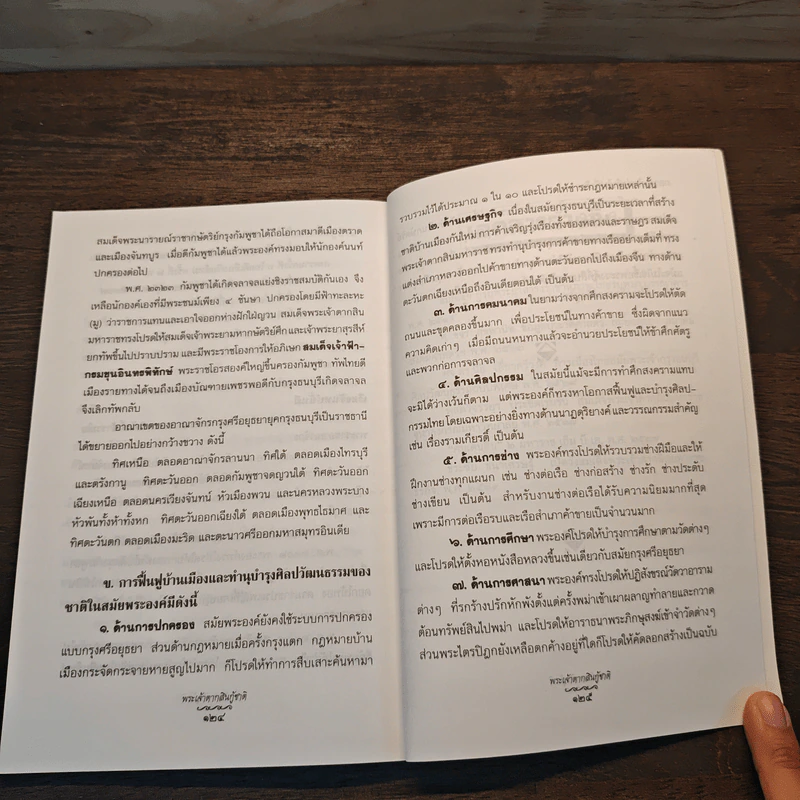 สมเด็จพระนารายณ์ราชากษัตริย์กรุงกัมพูชาได้ถือโอกาสมาตีเมืองตราด
และเมืองจันทบูร เมื่อตีกัมพูชาได้แล้วพระองค์ทรงมอบให้นักองค์นนท์
ปกครองต่อไป
พ.ศ. ๒๓๒๓ กัมพูชาได้เกิดจลาจลแย่งชิงราชสมบัติกันเอง จึง
เหลือนักองค์เองที่มีพระชนม์เพียง ๔ ชันษา ปกครองโดยมีฟ้าทะละหะ
(มู) ว่าราชการแทนและเอาใจออกห่างฝักใฝ่ญวน สมเด็จพระเจ้าตากสิน
มหาราชทรงโปรดให้สมเด็จเจ้าพระยามหากษัตริย์ศึกและเจ้าพระยาสุรสีห์
ยกทัพขึ้นไปปราบปราม และมีพระราชโองการให้อภิเษก สมเด็จเจ้าฟ้า-
กรมขุนอินทรพิทักษ์ พระราชโอรสองค์ใหญ่ขึ้นครองกัมพูชา ทัพไทยตี
เมืองรายทางได้จนถึงเมืองบัณฑายเพชรพอดีกับกรุงธนบุรีเกิดจลาจล
จึงเลิกทัพกลับ
อาณาเขตของอาณาจักรกรุงศรีอยุธยายุคกรุงธนบุรีเป็นราชธานี
ได้ขยายออกไปอย่างกว้างขวาง ดังนี้
ทิศเหนือ ตลอดอาณาจักรลานนา ทิศใต้ ตลอดเมืองไทรบุรี
และตรังกานู ทิศตะวันออก ตลอดกัมพูชาจดญวนใต้ ทิศตะวันออก
เฉียงเหนือ ตลอดนครเวียงจันทน์ หัวเมืองพวน และนครหลวงพระบาง
หัวพันทั้งห้าทั้งหก ทิศตะวันออกเฉียงใต้ ตลอดเมืองพุทธไธมาศ และ
ทิศตะวันตก ตลอดเมืองมะริด และตะนาวศรีออกมหาสมุทรอินเดีย
ข. การฟื้นฟูบ้านเมืองและทำนุบำรุงศิลปวัฒนธรรมของ
ชาติในสมัยพระองค์มีดังนี้
๑. ด้านการปกครอง สมัยพระองค์ยังคงใช้ระบบการปกครอง
แบบกรุงศรีอยุธยา ส่วนด้านกฎหมายเมื่อครั้งกรุงแตก กฎหมายบ้าน
เมืองกระจัดกระจายหายสูญไปมาก ก็โปรดให้ทำการสืบเสาะค้นหามา
พระเจ้าตากสินกู้ชาติ
๑๒๔
รวบรวมไว้ได้ประมาณ ๑ ใน ๑๐ และโปรดให้ชำระกฎหมายเหล่านั้น
๒. ด้านเศรษฐกิจ เนื่องในสมัยกรุงธนบุรีเป็นระยะเวลาที่สร้าง
ชาติบ้านเมืองกันใหม่ การค้าเจริญรุ่งเรืองทั้งของหลวงและราษฎร สมเด็จ
พระเจ้าตากสินมหาราช ทรงทำนุบำรุงการค้าขายทางเรืออย่างเต็มที่ ทรง
แต่งสำเภาหลวงออกไปค้าขายทางด้านตะวันออกไปถึงเมืองจีน ทางด้าน
ตะวันตกเฉียงเหนือถึงอินเดียตอนใต้ เป็นต้น
๓. ด้านการคมนาคม ในยามว่างจากศึกสงครามจะโปรดให้ตัด
ถนนและขุดคลองขึ้นมาก เพื่อประโยชน์ในทางค้าขาย ซึ่งผิดจากแนว
ความคิดเก่าๆ เมื่อมีถนนหนทางแล้วจะอำนวยประโยชน์ให้ข้าศึกศัตรู
และพวกก่อการจลาจล
๔. ด้านศิลปกรรม ในสมัยนี้แม้จะมีการทำศึกสงครามแทบ
จะมิได้ว่างเว้นก็ตาม แต่พระองค์ก็ทรงหาโอกาสฟื้นฟูและบำรุงศิลป-
กรรมไทย โดยเฉพาะอย่างยิ่งทางด้านนาฏดุริยางค์ และวรรณกรรมสำคัญ
เช่น เรื่องรามเกียรติ์ เป็นต้น
๕. ด้านการช่าง พระองค์ทรงโปรดให้รวบรวมช่างฝีมือและให้
ฝึกงานช่างทุกแผนก เช่น ช่างต่อเรือ ช่างก่อสร้าง ช่างรัก ช่างประดับ
ช่างเขียน เป็นต้น สำหรับงานช่างต่อเรือได้รับความนิยมมากที่สุด
เพราะมีการต่อเรือรบและเรือสำเภาค้าขายเป็นจำนวนมาก
๖. ด้านการศึกษา พระองค์โปรดให้บำรุงการศึกษาตามวัดต่างๆ
และโปรดให้ตั้งหอหนังสือหลวงขึ้นเช่นเดียวกับสมัยกรุงศรีอยุธยา
๗. ด้านการศาสนา พระองค์ทรงโปรดให้ปฏิสังขรณ์วัดวาอาราม
ต่างๆ ที่รกร้างปรักหักพังตั้งแต่ครั้งพม่าเข้าเผาผลาญทำลายและกวาด
ต้อนทรัพย์สินไปพม่า และโปรดให้อาราธนาพระภิกษุสงฆ์เข้าจำวัดต่างๆ
ส่วนพระไตรปิฎกยังเหลือตกค้างอยู่ที่ใดก็โปรดให้คัดลอกสร้างเป็นฉบับ
พระเจ้าตากสินกู้ชาติ
๑๒๕